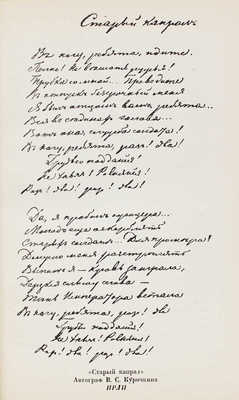 Старый капралъ.
Въ ногу, ребята, идите.
Полно! Не вѣшать ружья!
Трубка со мной... Проводите
Въ отпускъ безсрочный меня
Я былъ отцомъ вамъ, ребята...
Вся въ сѣдинахъ голова...
Вотъ она, служба солдата!
Въ ногу, ребята, разъ! Два!
Грудью подайся!
Не хнычь! Равняйся!
Разъ! Два! разъ! Два!
Да, я прибилъ офицера...
Молодъ еще оскорблять
Старыхъ солдатъ... Для примѣра!
Должно меня разстрѣлять
Выпилъ я — кровь заиграла,
Дерзкія слышу слова —
Тѣнь Императора встала
Въ ногу, ребята, разъ! Два
Грудью подайся!
Не хнычь! Равняйся!
Разъ! Два! разъ! Два!
«Старый капрал»
Автограф В. С. Курочкина
ИРЛИ